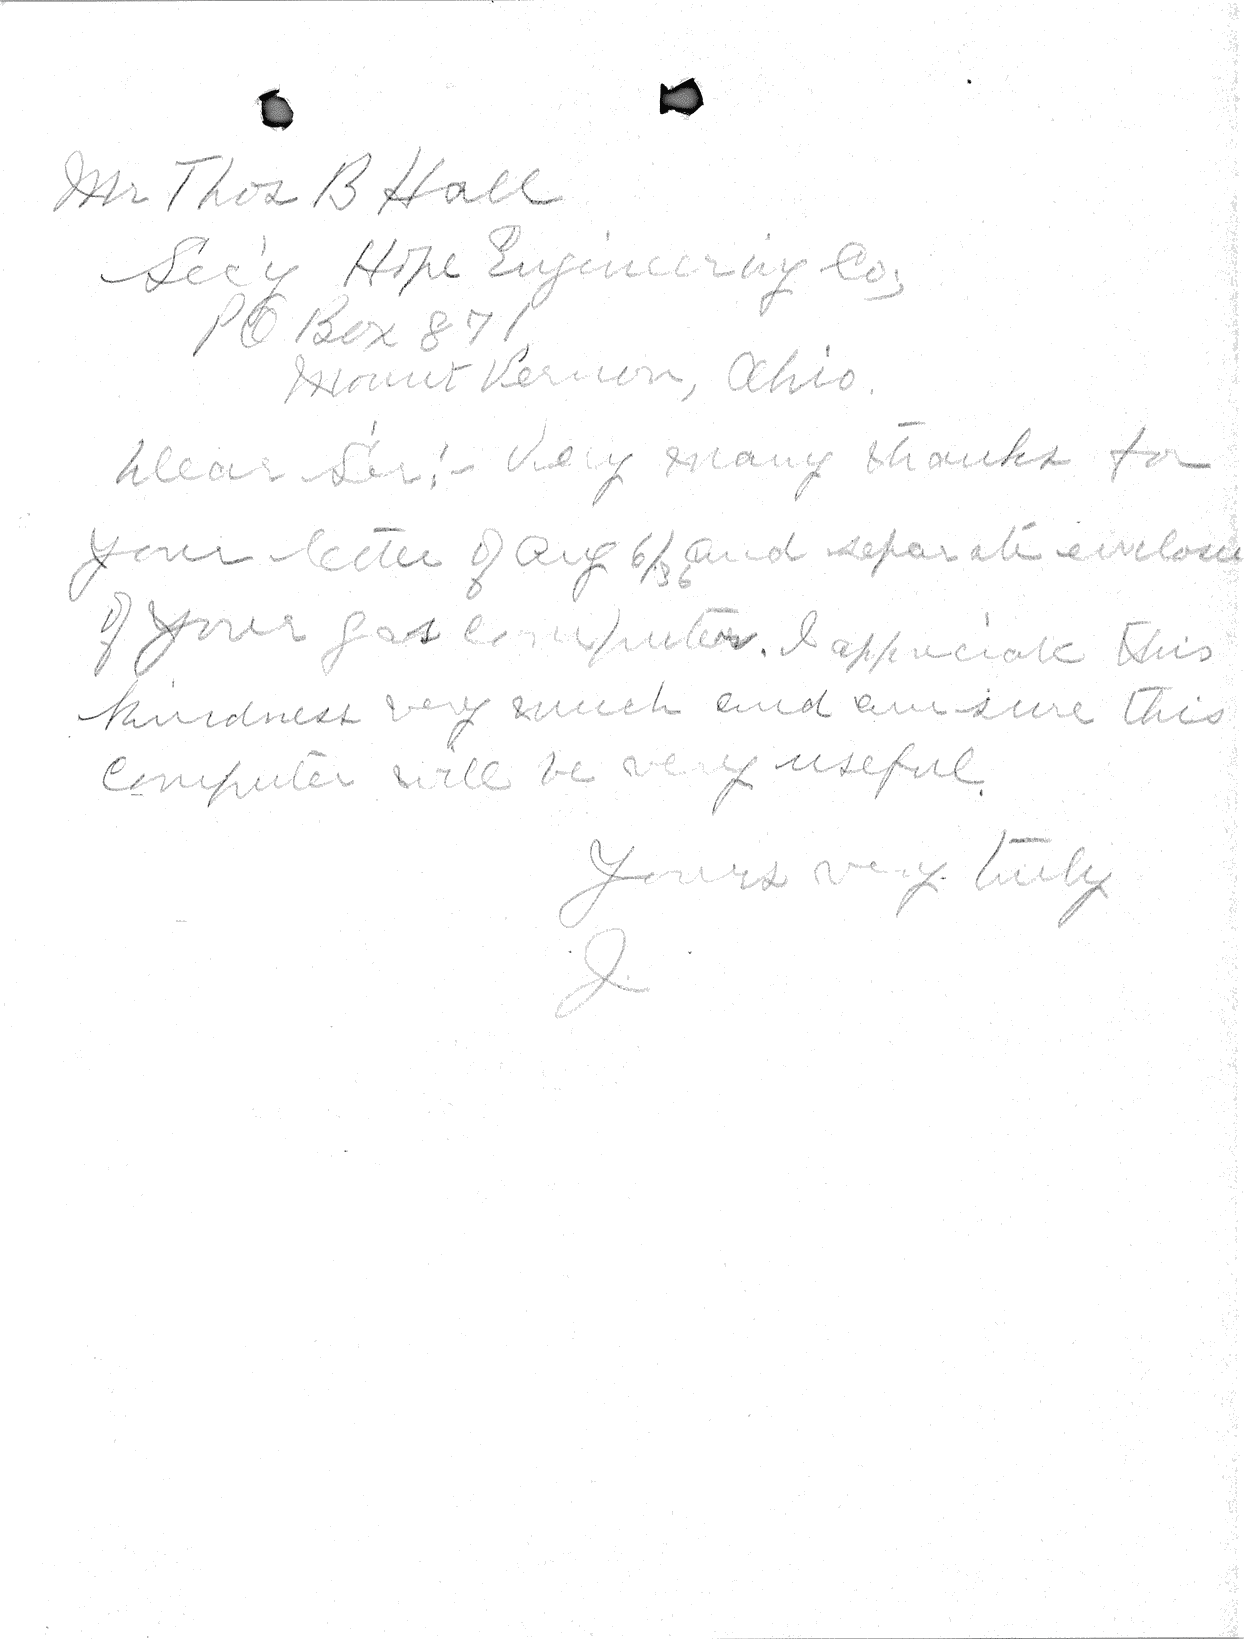 Mr Thos B Hall
Sec'y Hope Engineering Co,
PO Box 871
Mount Vernon, Ohio.
Dear Sir:- Very many thanks for
your letter of Aug 6/36 and separate enclosure
of your gas computer. I appreciate this
kindness very much and am sure this
computer will be very useful.
Yours very truly
J.